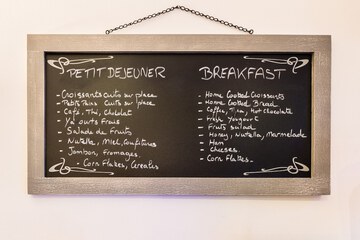 PETIT DEJEUNER
- Croissants cuits sur place
- Petits Pains Cuits sur place
- Café, Thé, Chocolat
- Ya ourts Frais
- Salade de Fruits
- Nutella, Miel, Confitures
- Jambon, fromages
- Corn Flakes, Cereales
BREAKFAST
- Home Cooked Croissants
- Home Cooked Bread
- Coffee, Tea, Hot Chocolate
- Fresh Yougourt
- Fruits salad
- Honey, Nutella, Marmelade
- Ham
- Cheeses
- Corn Flakes